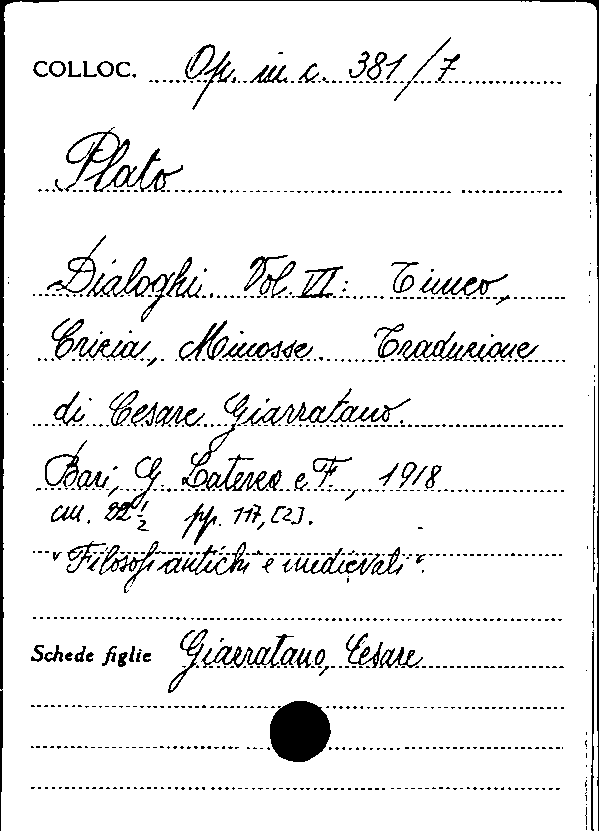 COLLOC. Op. in c. 381/7
Plato
Dialoghi. Vol. VI: Timeo,
Crizia, Minosse. Traduzione
di Cesare Giarratano.
Bari, G. Laterza e F., 1918
cm. 22½ pp. 117, [2].
"Filosofi antichi e medievali".
Schede figlie Giarratano, Cesare